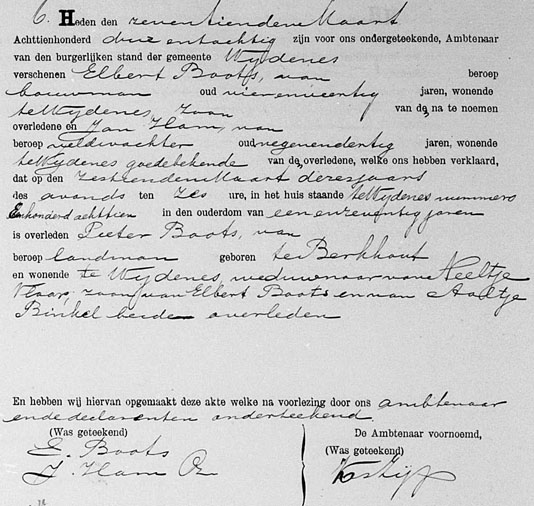 6. Heden den zeventienden Maart
Achttienhonderd drie en tachtig zijn voor ons ondergeteekende, Ambtenaar
van den burgerlijken stand der gemeente Wydenes
verschenen Elbert Boots, van beroep
bouwman oud vierenveertig jaren, wonende
te Wydenes, zoon van de na te noemen
overledene en Jan Ham, van
beroep veldwachter oud negenendertig jaren, wonende
te Wydenes goede bekende van de overledene, welke ons hebben verklaard,
dat op den zestienden Maart dezes jaars
des avonds ten zes ure, in het huis staande te Wydenes nummer
Eenhonderd achttien in den ouderdom van een en zeventig jaren
is overleden Pieter Boots, van
beroep landman geboren te Berkhout
en wonende te Wydenes, weduwnaar van Neeltje
Klaar, zoon van Elbert Boots en van Aaltje
Binkel beiden overleden
En hebben wij hiervan opgemaakt deze akte welke na voorlezing door ons ambtenaar
en de declaranten onderteekend
(Was geteekend) De Ambtenaar voornoemd,
E. Boots (Was geteekend)
J. Ham